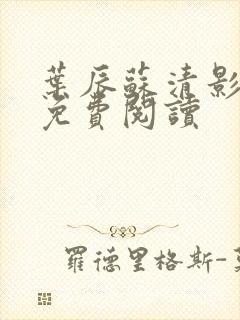 葉辰蘇清影
免費閱讀
羅德里格斯-